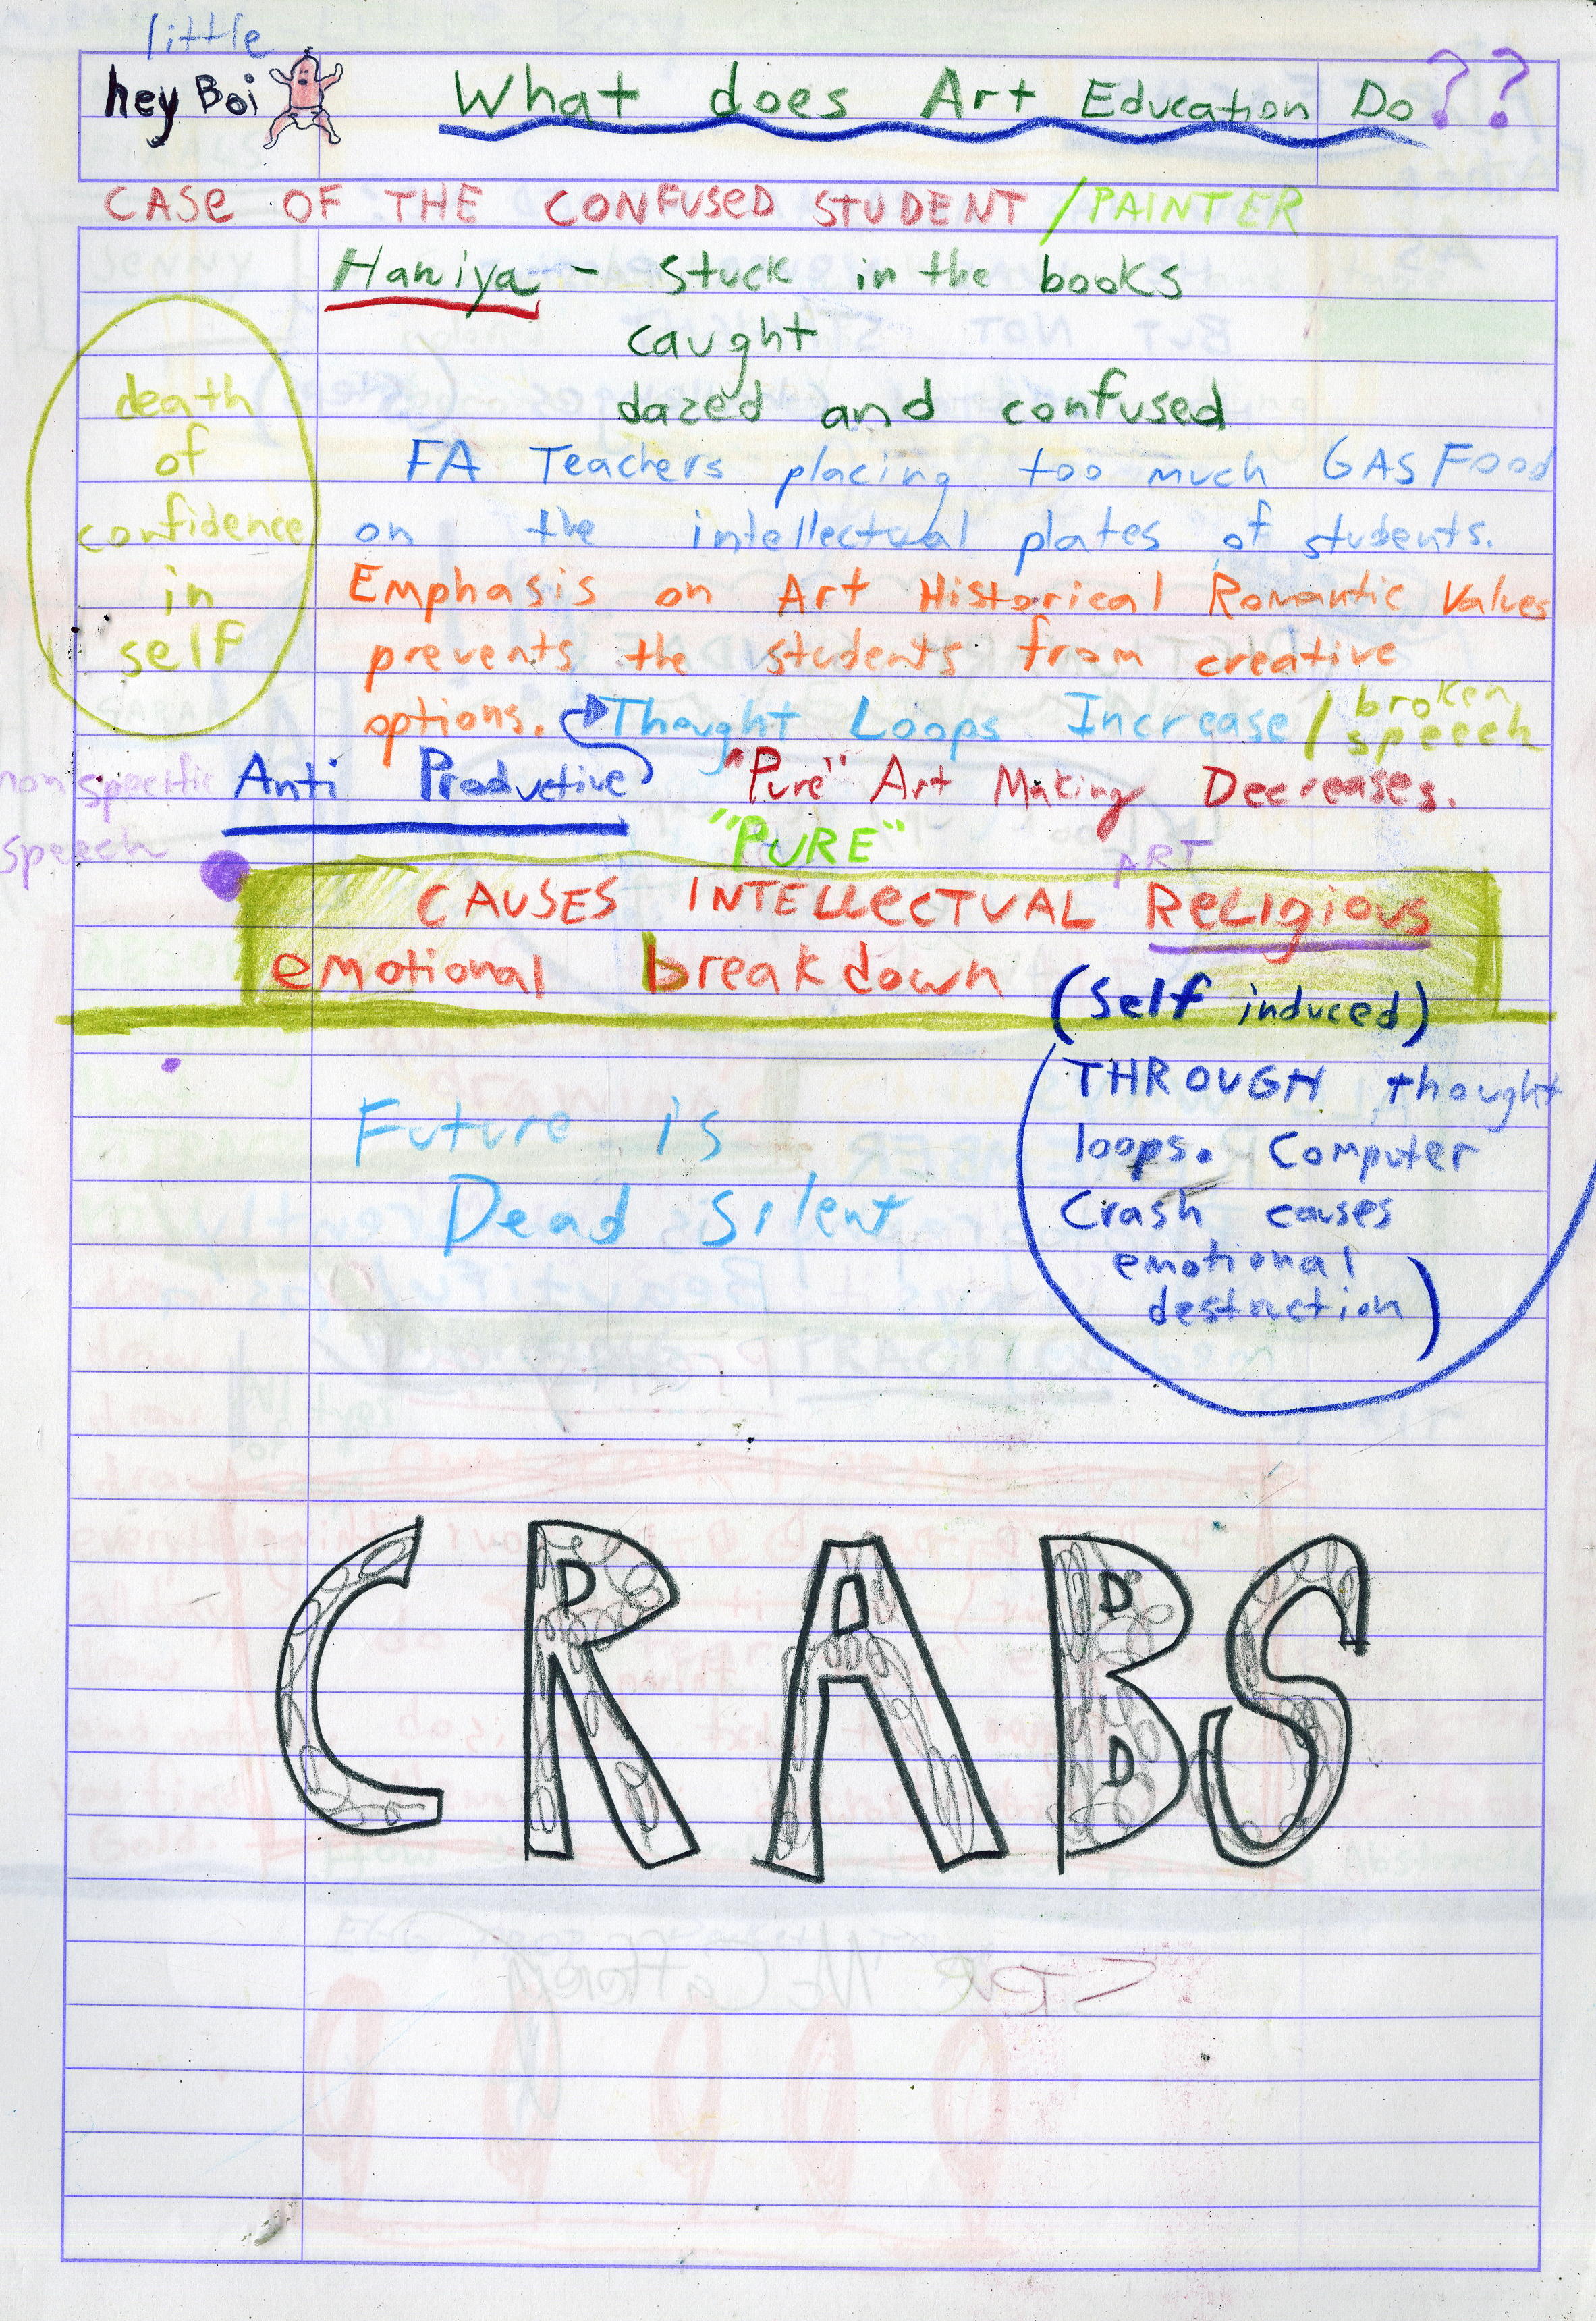 little
hey Boi
What does Art Education Do??
CASE OF THE CONFUSED STUDENT /PAINTER
Haniya - stuck in the books
caught
dazed and confused
death
of
confidence
in
self
FA Teachers placing too much GAS Food
on the intellectual plates of students.
Emphasis on Art Historical Romantic Values
prevents the students from creative
options. Thought Loops Increase / broken
speech
non specific
speech
Anti Productive
"Pure" Art Making Decreases.
"PURE"
ART
CAUSES INTELLECTUAL Religious
emotional breakdown
(Self induced)
THROUGH thought
loops. Computer
Crash causes
emotional
destruction)
Future is
Dead silent
CRABS